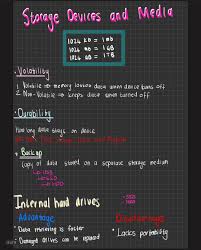 Storage Devices and Media
1024 KB = 1MB
1024 MB = 1GB
1024 GB = 1TB
• Volatility
1 Volatile → memory loses data when device turns off
2 Non-Volatile → keeps data when turned off
• Durability
How long data stays on device
• Backup
Copy of data stored on a separate storage medium
Internal hard drives
Advantage
• Data retrieving is faster
• Damaged drives can be replaced
Disadvantages
• Lacks portability